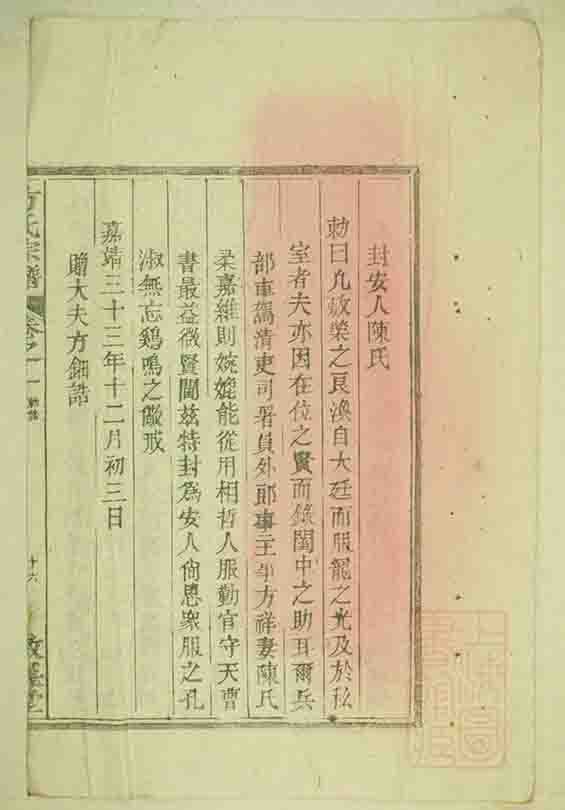 封安人陳氏
勅曰凡敘榮之良渙自大廷而服寵之光及於私
室者夫亦因在位之賢而錄閨中之助耳爾兵
部車駕清吏司署員外郎事主事方祥妻陳氏
柔嘉維則婉娩能從用相哲人服勤官守天曹
書最益徵賢閫茲特封為安人尚思象服之孔
淑無忘鷄鳴之儆戒
嘉靖三十三年十二月初三日
贈大夫方鈿誥
方氏宗譜
卷之一
十六
敦善堂